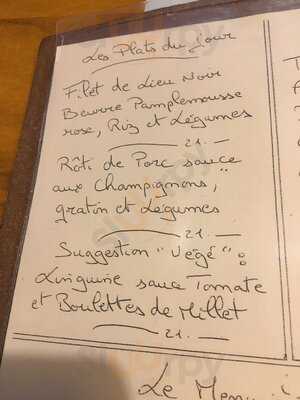 Les Plats du jour
Filet de Lieu Noir
Beurre Pamplemousse
rose, Riz et Légumes
21.-
Rôti de Porc sauce
aux Champignons,
gratin et Légumes
21.-
Suggestion "Végé" :
Linguine sauce Tomate
et Boulettes de Millet
21.-
Le Menu